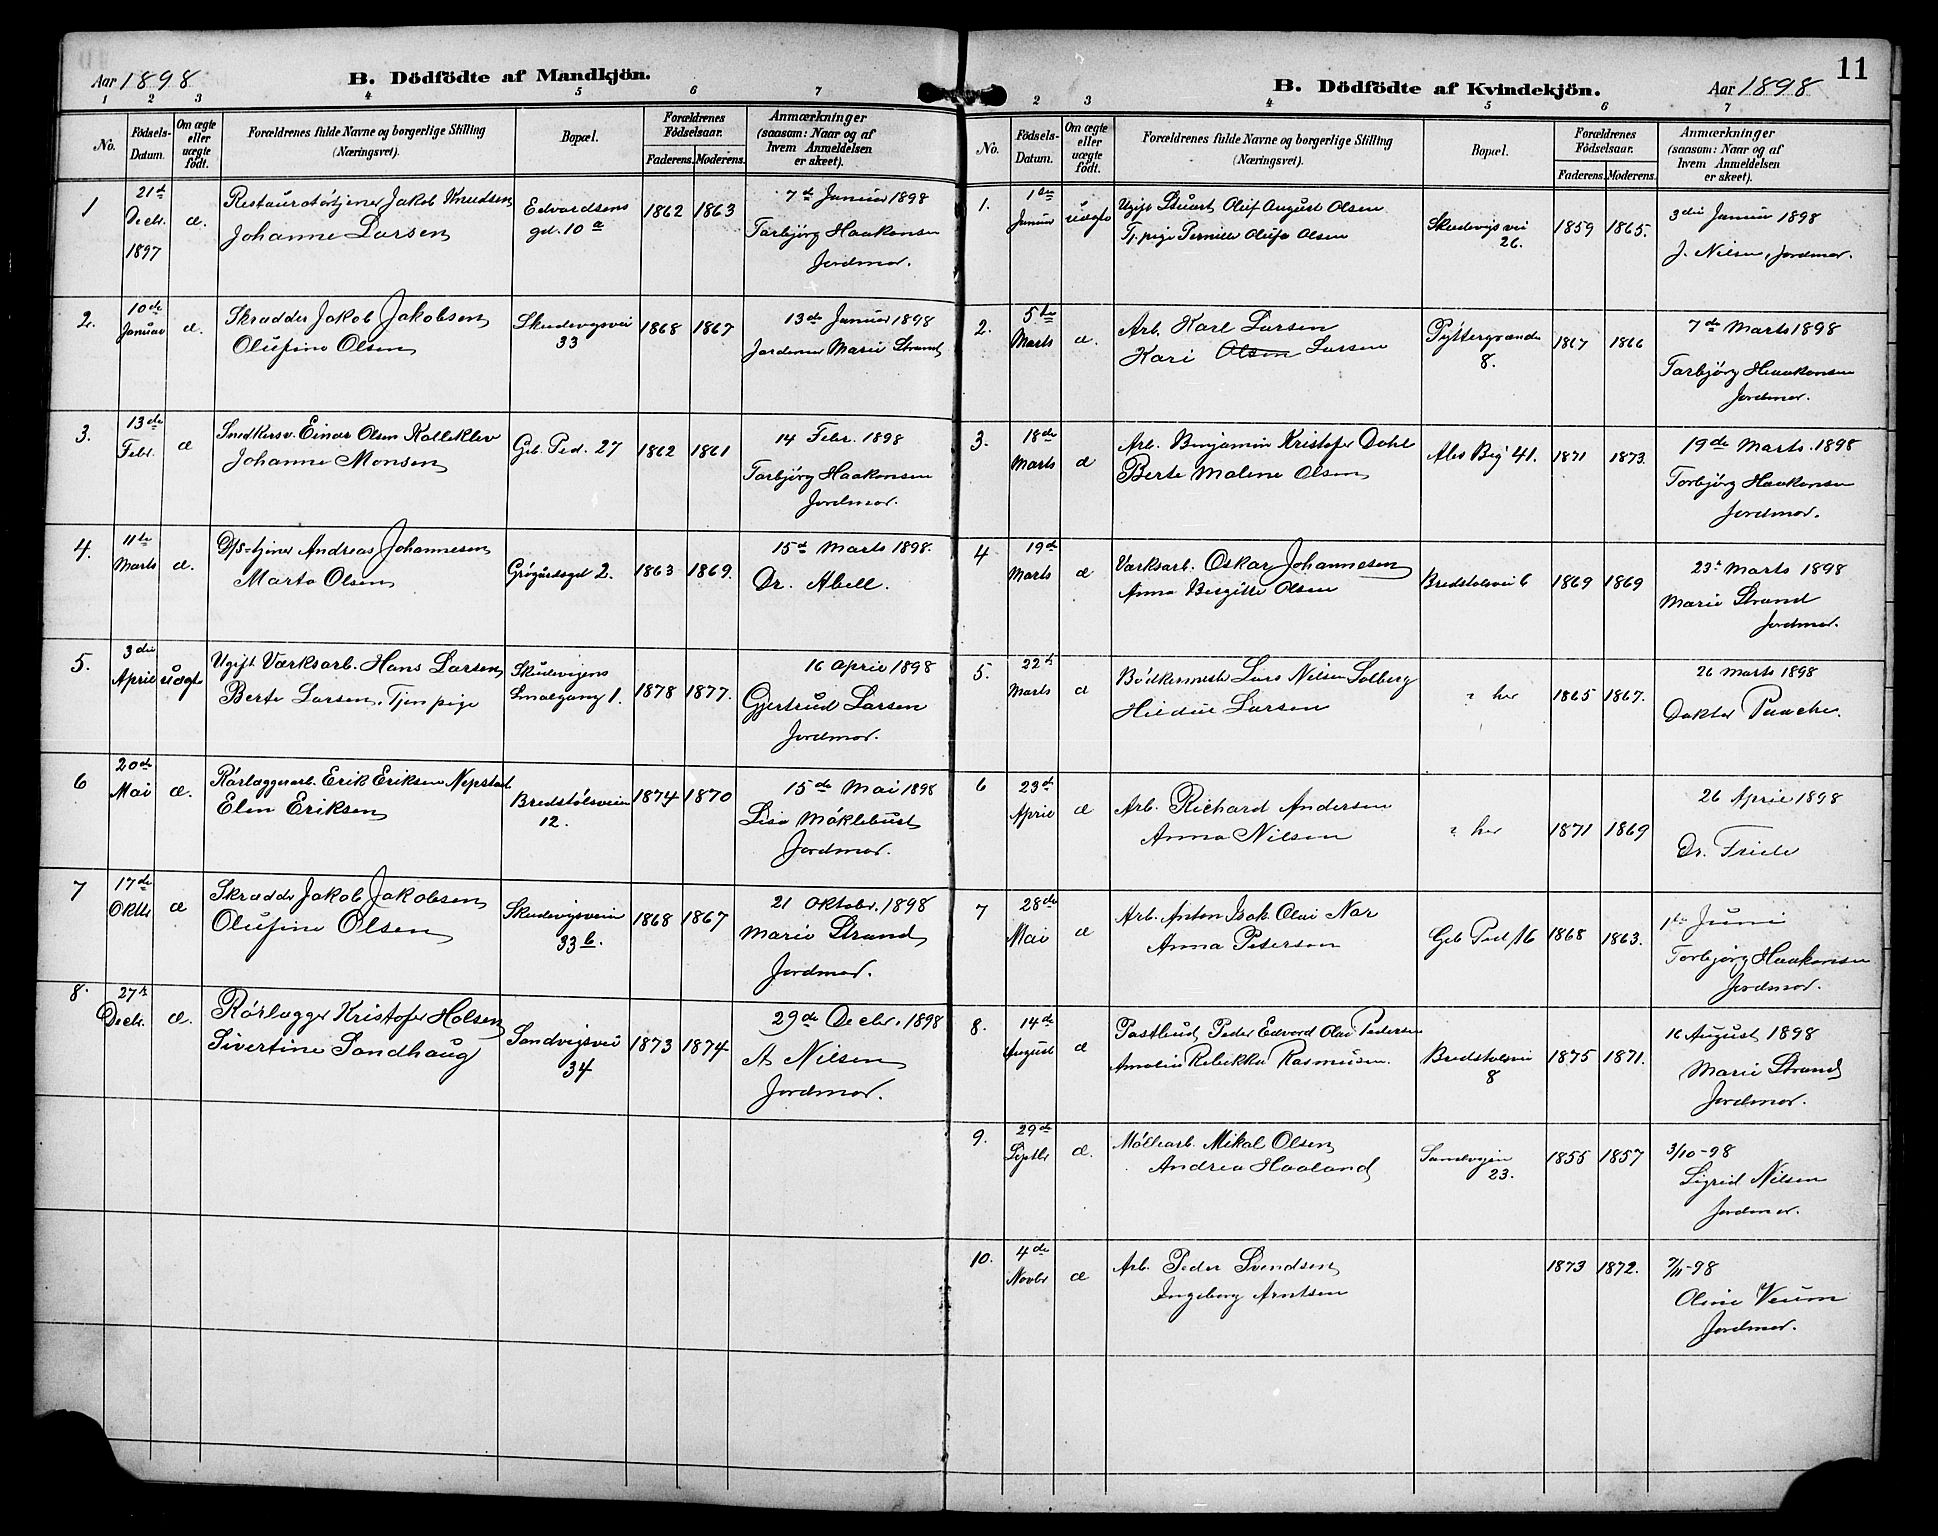 Aar 1898 B. Dödfödte af Mandkjön.
1 2 3 4 5 6 7
No. Födsels-Datum. Om ægte eller uægte født. Forældrenes fulde Navne og borgerlige Stilling (Næringsvei). Bopæl. Forældrenes Födselsaar. Faderens. Moderens. Anmærkninger (saasom: Naar og af hvem Anmeldelsen er skeet).
1 21de Decbr. 1897 æ. Jakob Knudsen Edvardsens 1862 1863 7de Januar 1898
Johanne Larsen gd. 10 a Torbjörg Haakonsen
Jordmor.
2. 10de Januar æ. Skrædder Jakob Jakobsen Skudevigsvei 1868 1867 13de Januar 1898
Olufine Olsen 33 Jordmor Marie Strand
3. 13de Febr. æ Snedkersv. Einar Olsen Kolleklev Geb. Ped. 27 1862 1861 14 Febr. 1898
Johanne Monsen Torbjörg Haakonsen
Jordmor.
4. 11te Marts æ. D/s-tjener Andreas Johannesen 1863 1869. 15de Marts 1898.
Marta Olsen 2. Dr. Abell.
5. 3die April uægte Ugift Værksarb. Hans Larsen Skudevigens 1878 1877. 16 April 1898
Berte Larsen, Tjen pige Smalgang 1. Gjertrud Larsen
Jordmor.
6 20de Mai æ. Rörlæggerarb. Erik Eriksen Nepstad Bredstölsveien 1874 1870 15de Mai 1898
Elen Eriksen 12. Lisa Möklebust
Jordmor.
7 17de Oktbr æ Skrædder Jakob Jakobsen Skudevigsveien 1868 1867 21 Oktober. 1898
Olufine Olsen 33 b. Marie Strand
Jordmor.
8. 27de Decbr. æ. Rörlægger Kristofer Holsen Sandvigsvei 1873 1874 29de Decbr. 1898
Sivertine Sandhaug 34 A Nilsen
Jordmor.
B. Dödfödte af Kvindekjön. Aar 1898 11
2 3 4 5 6 7
No. Födsels-Datum. Om ægte eller uægte födt. Forældrenes fulde Navne og borgerlige Stilling (Næringsvei). Bopæl. Forældrenes Födselsaar. Faderens. Moderens. Anmærkninger (saasom: Naar og af hvem Anmeldelsen er skeet).
1. 1ste Januar uægte Ugift Stuart Oluf August Olsen Skudevigsvei 1859 1865. 3die Januar 1898
Tj. pige Pernille Olufa Olsen 26. J. Nilsen, Jordmor.
2. 5te Marts æ. Arb. Karl Larsen 1867 1866 7de Marts 1898
Kari Olsen Larsen 8. Torbjörg Haakonsen
Jordmor.
3. 18de Marts æ Arb. Benjamin Kristofer Dahl 41. 1871 1873. 19de Marts. 1898
Berte Malene Olsen Torbjörg Haakonsen
Jordmor.
4 19de Marts æ Værksarb. Oskar Johannesen Bredstolsvei 6 1869 1869 23de Marts 1898
Anna Birgitte Olsen Marie Strand
Jordmor.
5. 22de Marts æ Lars Nilsen Solberg her 1865 1867. 26 Marts 1898
Larsen Doktor Paasche.
6 23de April æ Arb. Richard Andersen her 1871 1869 26 April 1898
Anna Nilsen Dr. Friele
7 28de Mai æ Arb. Anton Isak Olai Nar Geb Ped 16 1868 1863. 1ste Juni
Anna Peterson Torbjörg Haakonsen
Jordmor.
8. 14de August æ Postbud Peder Edvard Olai Pedersen Bredstolsvei 1875 1871. 16 August 1898
Amalie Rebekka Rasmussen. 8 Marie Strand
Jordmor.
9. 29de Septbr æ. Möllearb. Mikal Olsen Sandvigen 1855 1857 3/10-98
Andrea Haaland 23. Sigrid Nilsen
Jordmor.
10. 4de Novbr æ Arb. Peder Svendsen 1873 1872. 7/11-98
Ingeborg Arntsen Oline Veum
Jordmor.